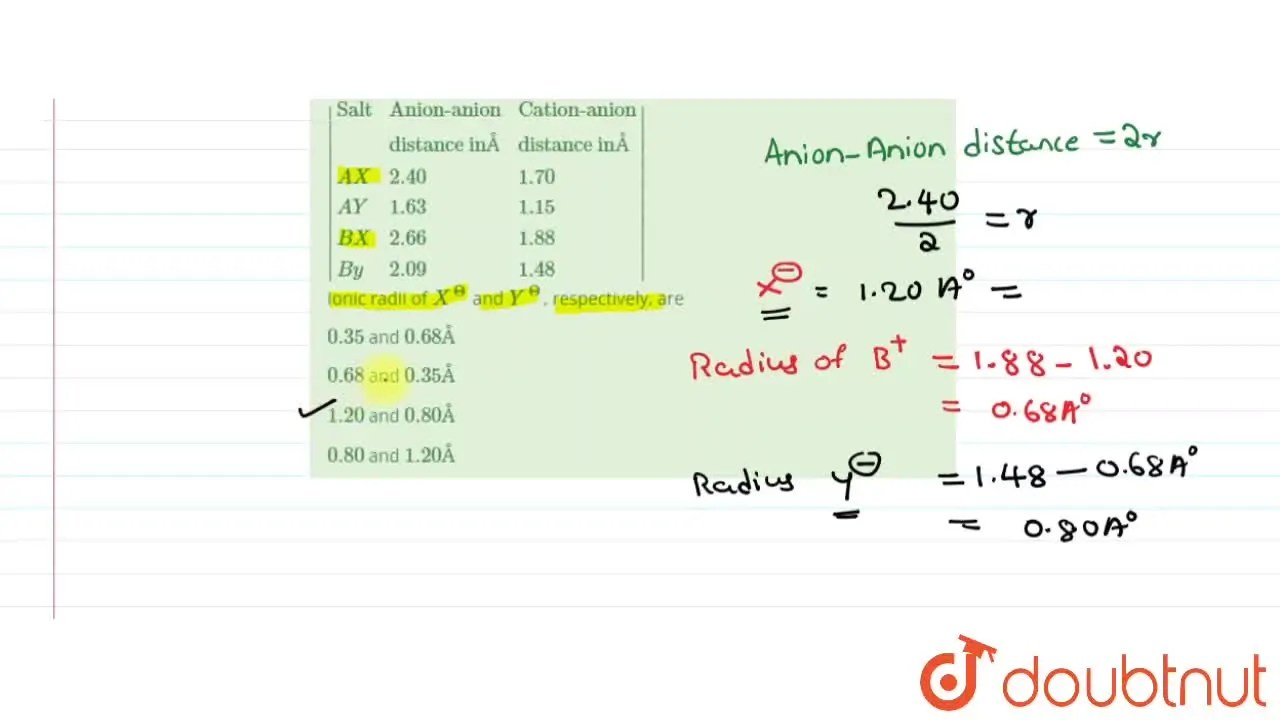 Salt Anion-anion Cation-anion
distance inÅ distance inÅ
AX 2.40 1.70
AY 1.63 1.15
BX 2.66 1.88
By 2.09 1.48
Ionic radii of X^Θ and Y^Θ , respectively, are
0.35 and 0.68Å
0.68 and 0.35Å
1.20 and 0.80Å
0.80 and 1.20Å
Anion-Anion distance = 2r
2.40/2 = r
x^⊖ = 1.20 A° =
Radius of B⁺ = 1.88 - 1.20
= 0.68A°
Radius y^⊖ = 1.48 - 0.68A°
= 0.80A°
doubtnut